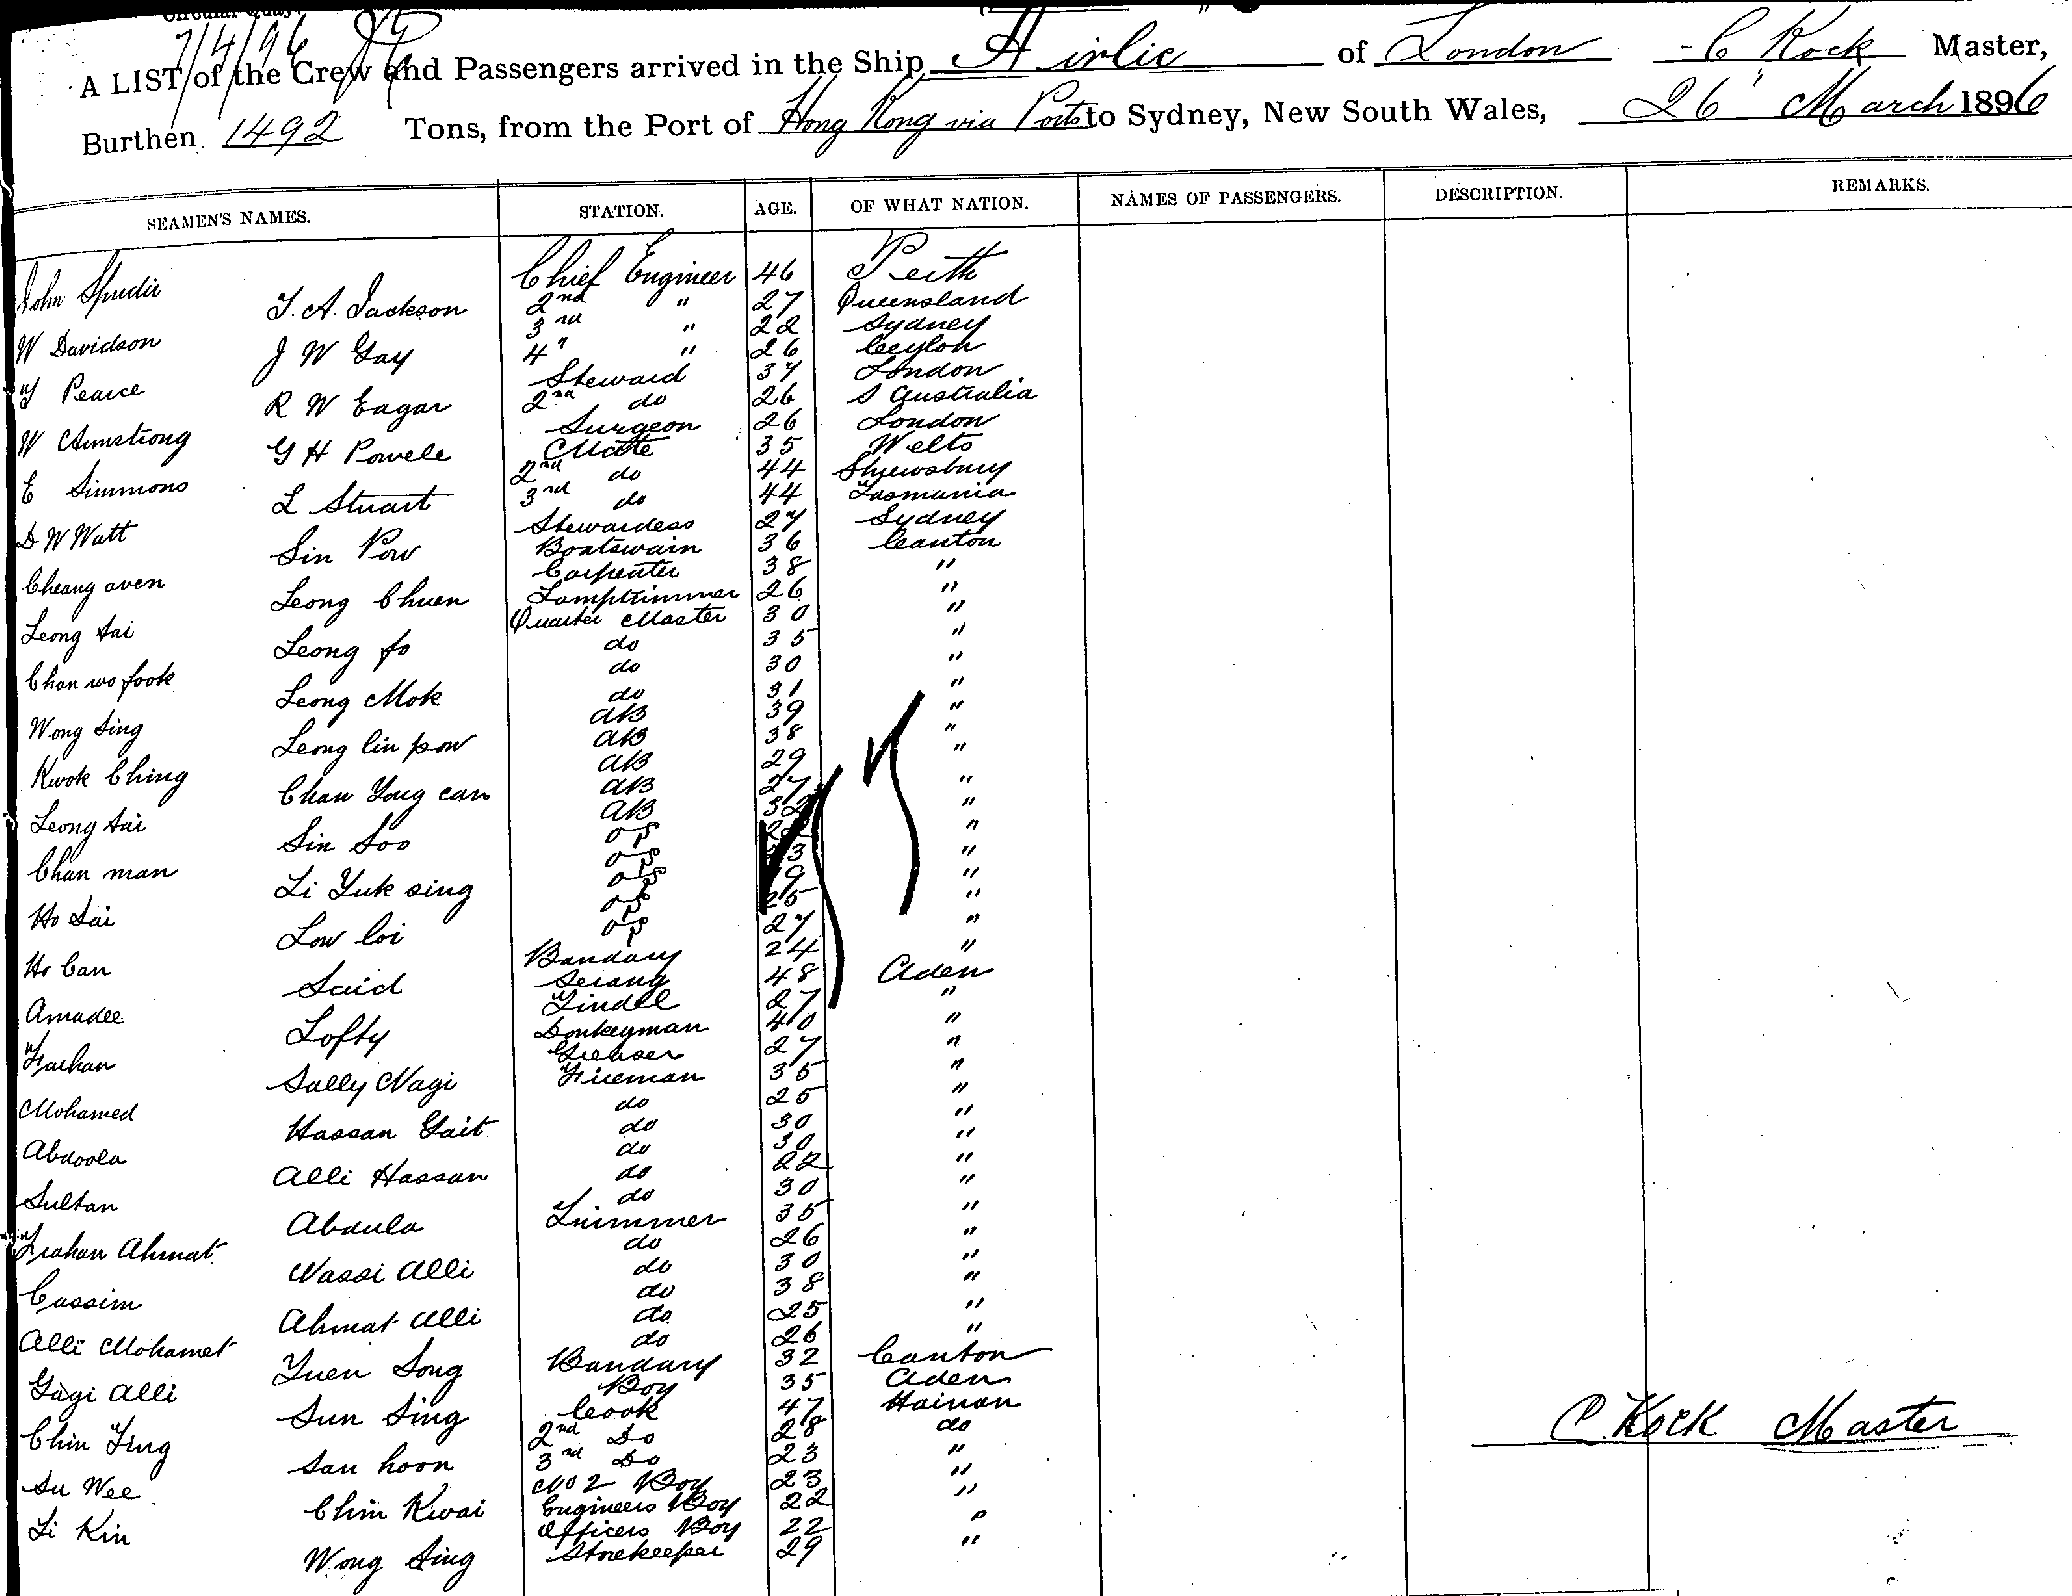 7/4/96
A LIST of the Crew and Passengers arrived in the Ship Airlie of London C Kock Master,
Burthen 1492 Tons, from the Port of Hong Kong via Ports to Sydney, New South Wales, 26" March 1896
SEAMEN'S NAMES. STATION. AGE. OF WHAT NATION. NAMES OF PASSENGERS. DESCRIPTION. REMARKS.
John Spudie Chief Engineer 46 Perth
T. A. Jackson 2nd " 27 Queensland
W Davidson 3rd " 22 Sydney
J W Gay 4" " 26 Ceylon
Pearce Steward 37 London
R W Eagar 2nd do 26 S Australia
W Armstrong Surgeon 26 London
G H Powele Mate 35 Welts
E Simmons 2nd do 44 Shrewsbury
L Stuart 3rd do 44 Tasmania
D W Watt Stewardess 27 Sydney
Sin Pow Boatswain 36 Canton
Cheang aven Carpenter 38 "
Leong Chuen Lamptrimmer 26 "
Leong tai Quarter Master 30 "
Leong fo do 35 "
Chan wo fook do 30 "
Leong Mok do 31 "
Wong Sing AB 39 "
Leong lin pow AB 38 "
Kwok Ching AB 29 "
Chan Yong can AB 27 "
Leong tai AB 32 "
Sin Soo OS "
Chan man OS "
Li Yuk sing OS "
Ho Tai OS 25 "
Low loi OS 27 "
Ho Can Bandary 24 "
Said Serang 48 Aden
Amadee Tindel 27 "
Lofty Donkeyman 40 "
Farhan Greaser 27 "
Sally Nagi Fireman 35 "
Mohamed do 25 "
Hassan Gait do 30 "
Abdoola do 30 "
Alli Hassan do 22 "
Sultan do 30 "
Abdula Trimmer 35 "
Frahan Ahmat do 26 "
Nassi Alli do 30 "
Cassim do 38 "
Ahmat Alli do 25 "
Alli Mohamet do 26 "
Yuen Song Bandary 32 Canton
Gagi Alli Boy 35 Aden
Sun Sing Cook 47 Hainan
Chin Fing 2nd Do 28 do
San hoon 3rd Do 23 "
Su Wee No 2 Boy 23 "
Chin Kwai Engineers Boy 22 "
Li Kin Officers Boy 22 "
Wong Sing Storekeeper 29 "
C. Kock Master